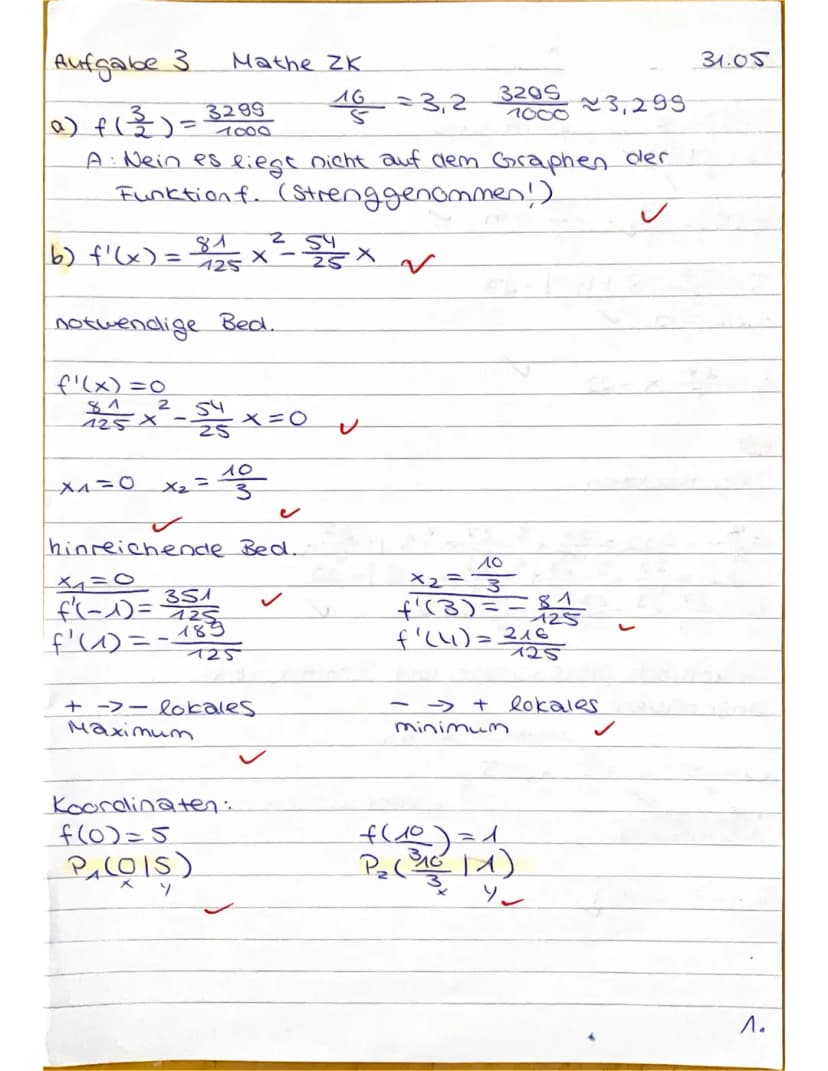 Aufgabe 3 Mathe ZK 31.05
a) f(3/2) = 3299/1000 16/5 = 3,2 3295/1000 ≈ 3,299
A: Nein es liegt nicht auf dem Graphen der
Funktion f. (Strenggenommen!)
b) f'(x) = 81/125 x² - 54/25 x
notwendige Bed.
f'(x) = 0
81/125 x² - 54/25 x = 0
x₁ = 0 x₂ = 10/3
hinreichende Bed.
x₁ = 0 x₂ = 10/3
f'(-1) = 351/125 f'(3) = - 81/125
f'(1) = - 189/125 f'(4) = 216/125
+ -> - lokales - -> + lokales
Maximum minimum
Koordinaten:
f(0) = 5 f(10/3) = 1
P₁(0|5) P₂(10/3|1)
x y x y
1.